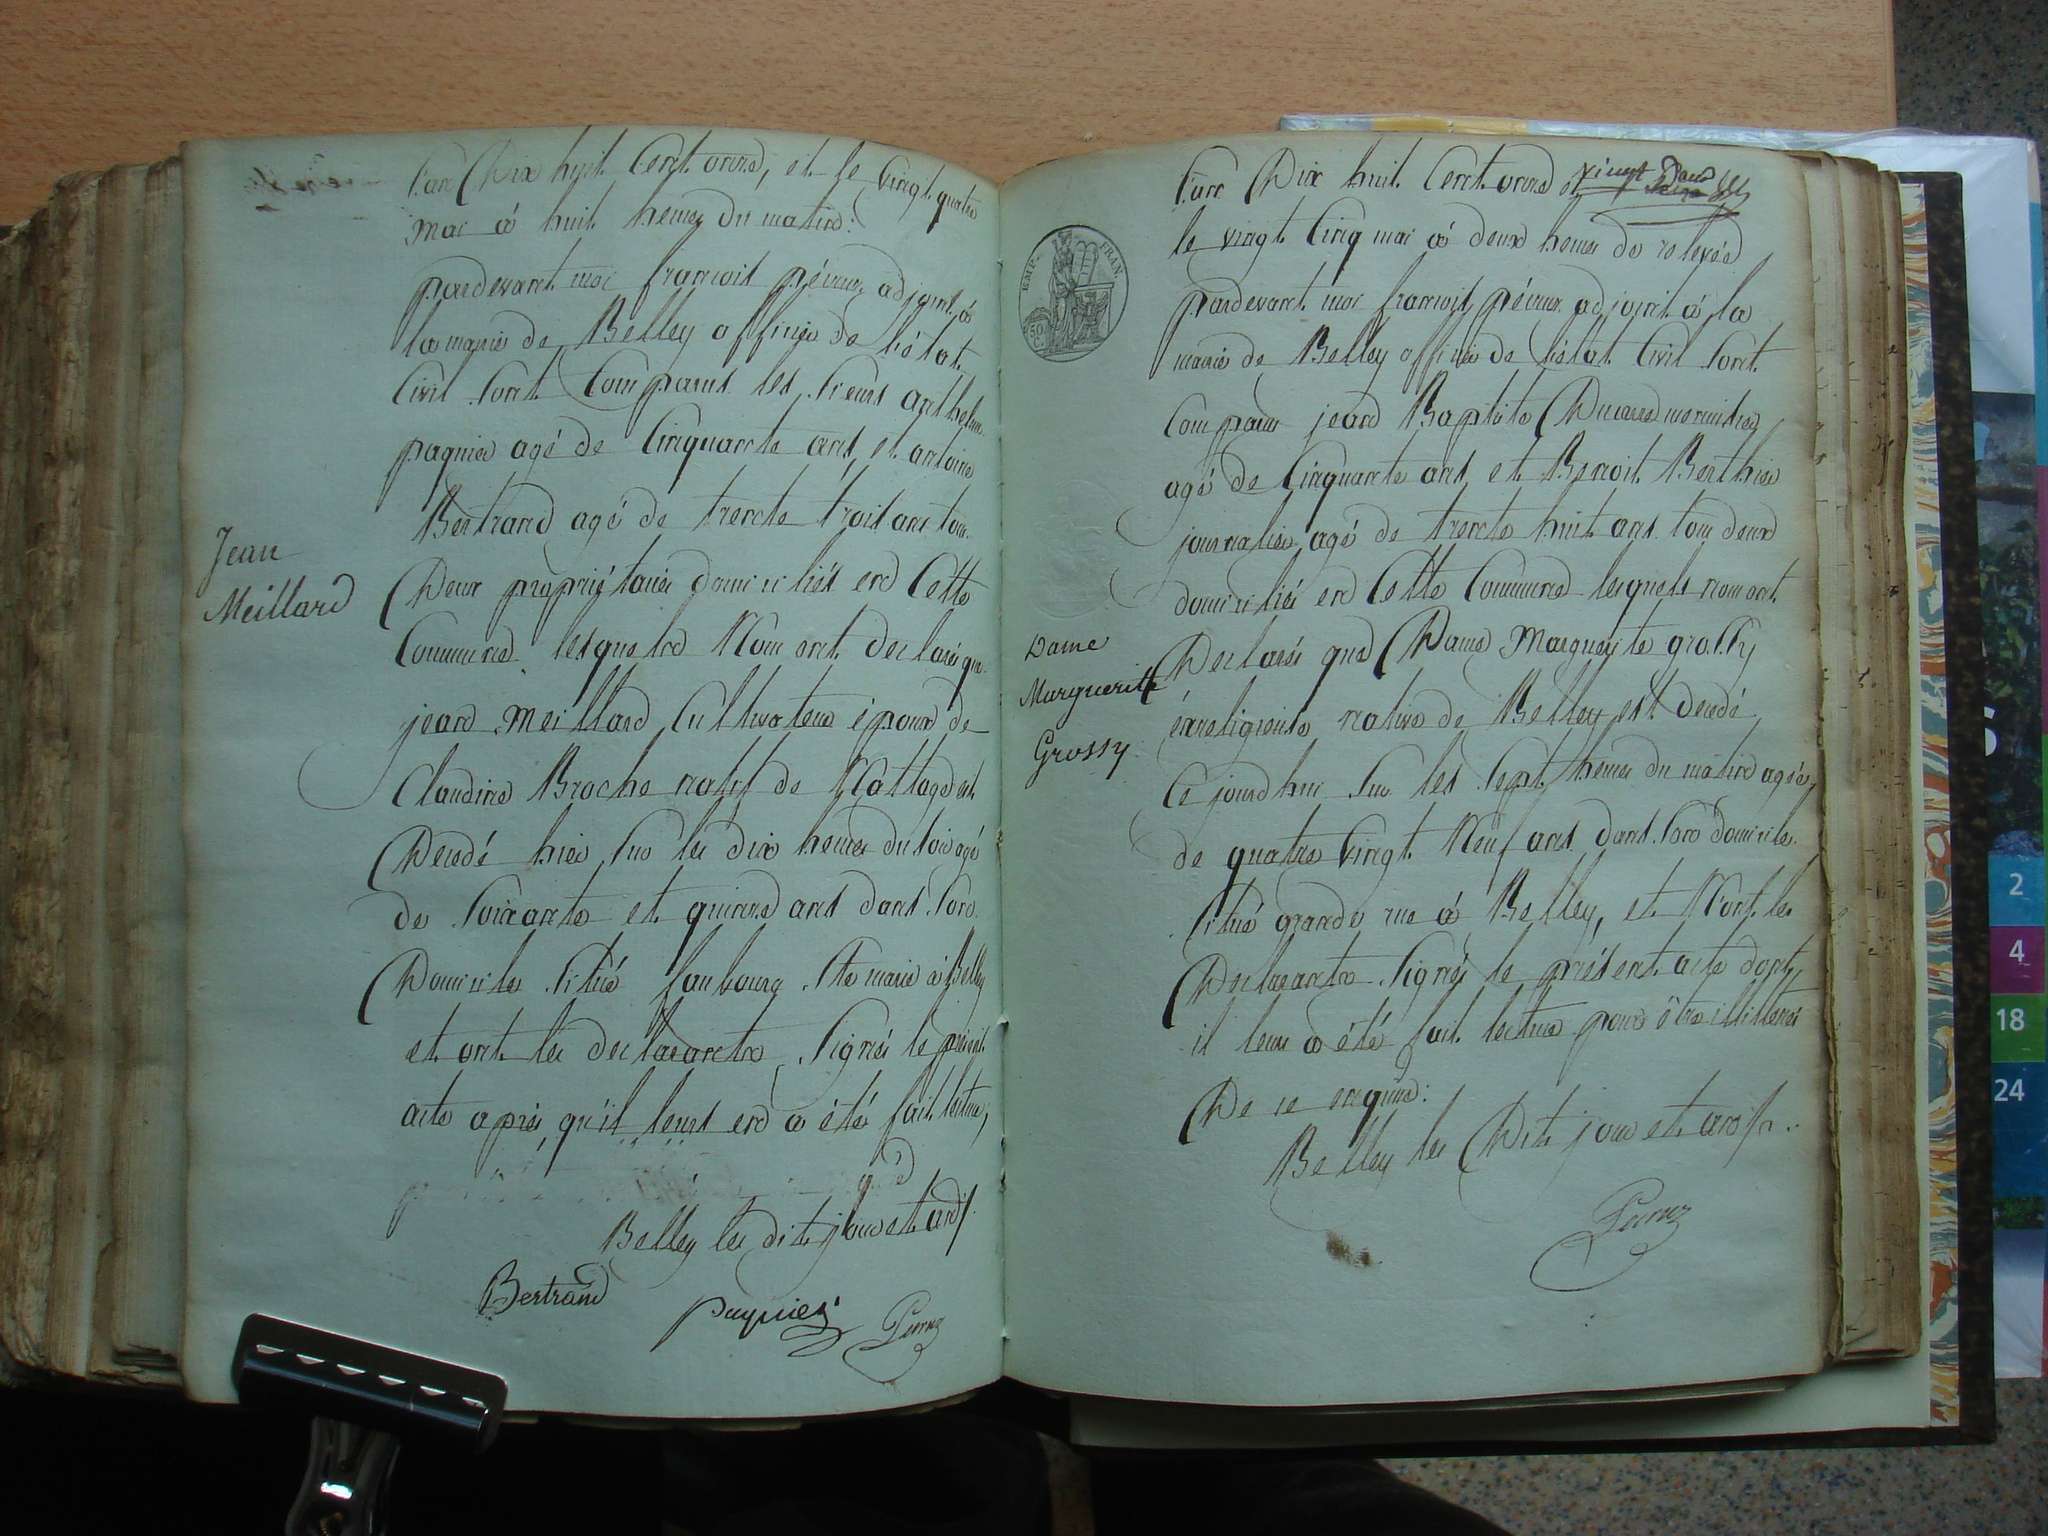 L'an Dix huit Cent onze, et le vingt quatre
mai à huit heures du matin:
pardevant moi françois pécruz adjoint à
la mairie de Belley officier de l'état
Civil sont Comparus les sieurs anthelme
paquier agé de Cinquante ans, et antoine
Bertrand agé de trente trois ans tous
Deux propriétaires domiciliés en Cette
Commune lesquels Nous ont declarés que
jean Meillard Cultivateur époux de
Claudine Broche natif de Nattage est
Decedé hier sur les dix heures du soir agé
de soixante et quinze ans dans son
Domicile situé faubourg Ste marie à Belley
et ont les declarants signés le présent
acte après qu'il leurs en a été fait lecture,
Belley les dits jour et an
Bertrand
Jean
Meillard
L'an Dix huit Cent onze et vingt
le vingt Cinq mai à deux heures de relevée
pardevant moi françois pécruz adjoint à la
mairie de Belley officier de l'état Civil sont
Comparus jean Baptiste menuisier
agé de Cinquante ans et Benoit Berthier
journalier agé de trente huit ans tous deux
domiciliés en Cette Commune lesquels nous ont
Declarés que Dame Marguerite grossy
éxreligieuse native de Belley est decedé
Ce jourd'hui sur les sept heures du matin agée
de quatre vingt Neuf ans dans son domicile
situé grande rue à Belley, et N'ont les
Declarants signés le présent acte dont
il leurs a été fait lecture pour être illitterés
De ce enquis:
Belley les Dits jour et an
Dame
Marguerite
Grossy
EMP. FRAN.
50 C.
2
4
18
24